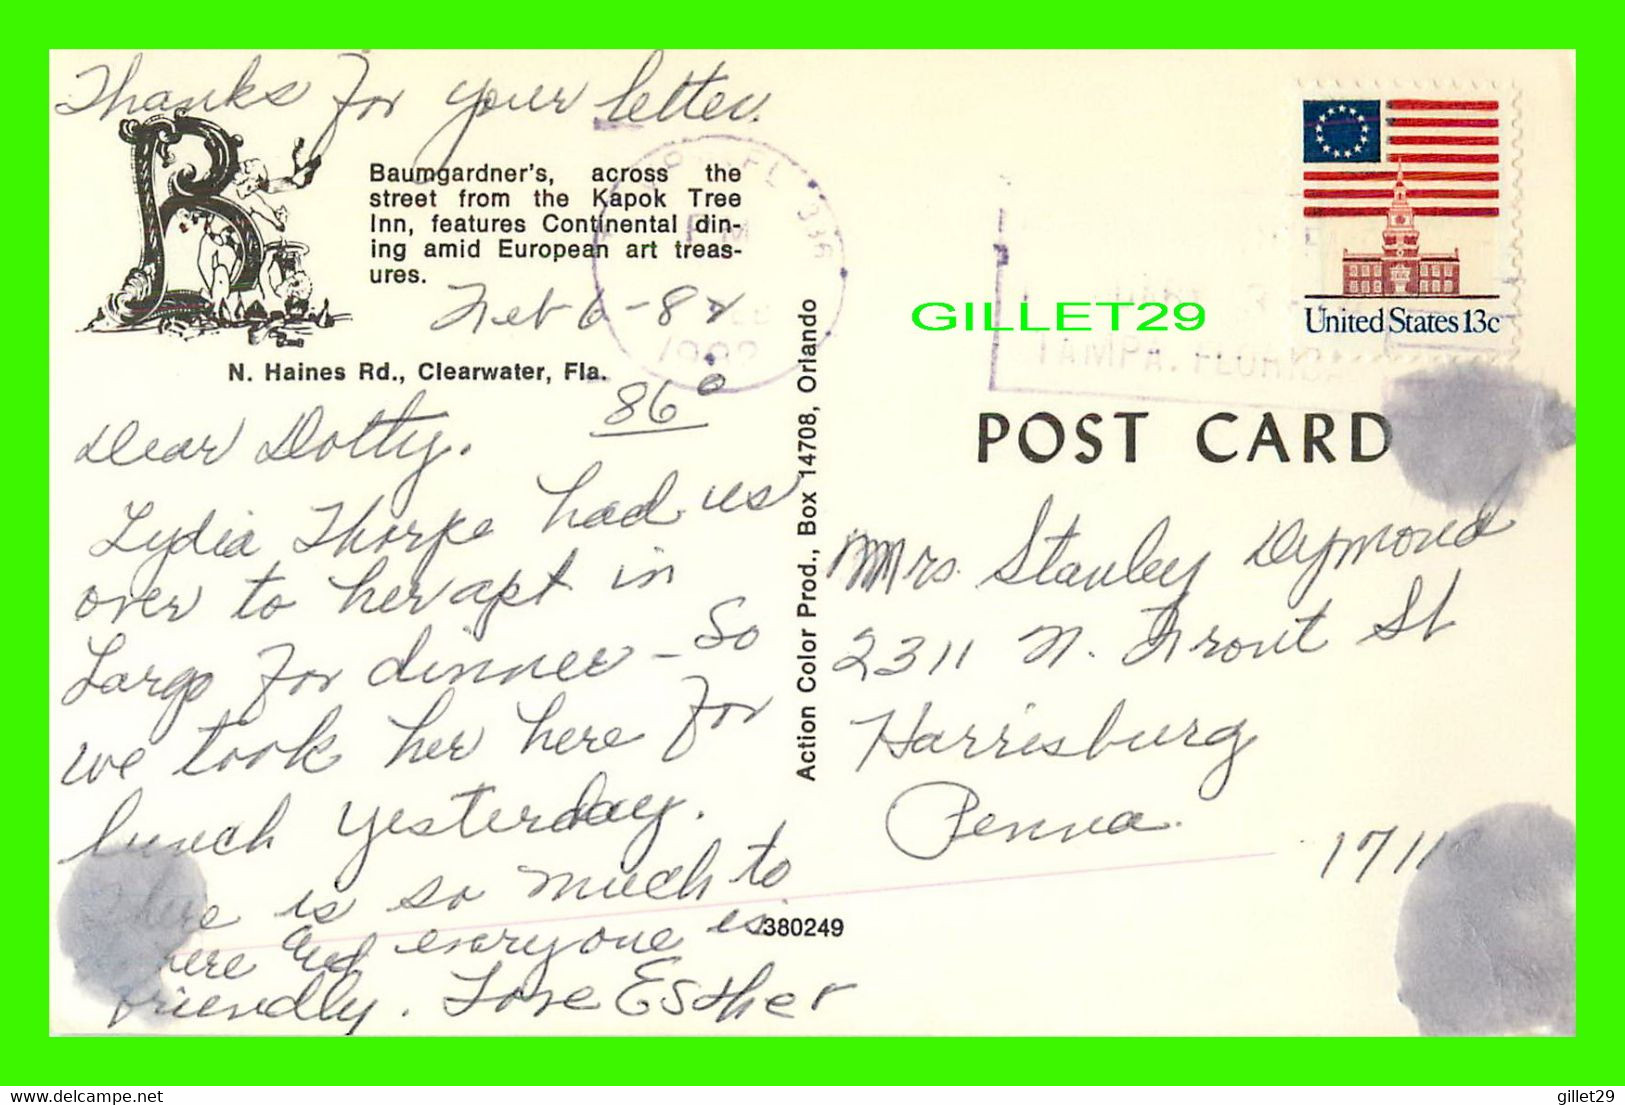 Thanks for your letter.
Baumgardner's, across the
street from the Kapok Tree
Inn, features Continental din-
ing amid European art treas-
ures.
Feb 6-82
N. Haines Rd., Clearwater, Fla.
86°
Dear Dotty.
Lydia Thorpe had us
over to her apt in
Largo for dinner - So
we took her here for
lunch yesterday.
There is so much to
here and everyone is
friendly. Love Esther
Action Color Prod., Box 14708, Orlando
380249
FL 336
PM
1982
TAMPA, FLORIDA
GILLET29
United States 13c
POST CARD
Mrs. Stanley Dymond
2311 N. Front St
Harrisburg
Penna.
1711
delcampe.net
gillet29